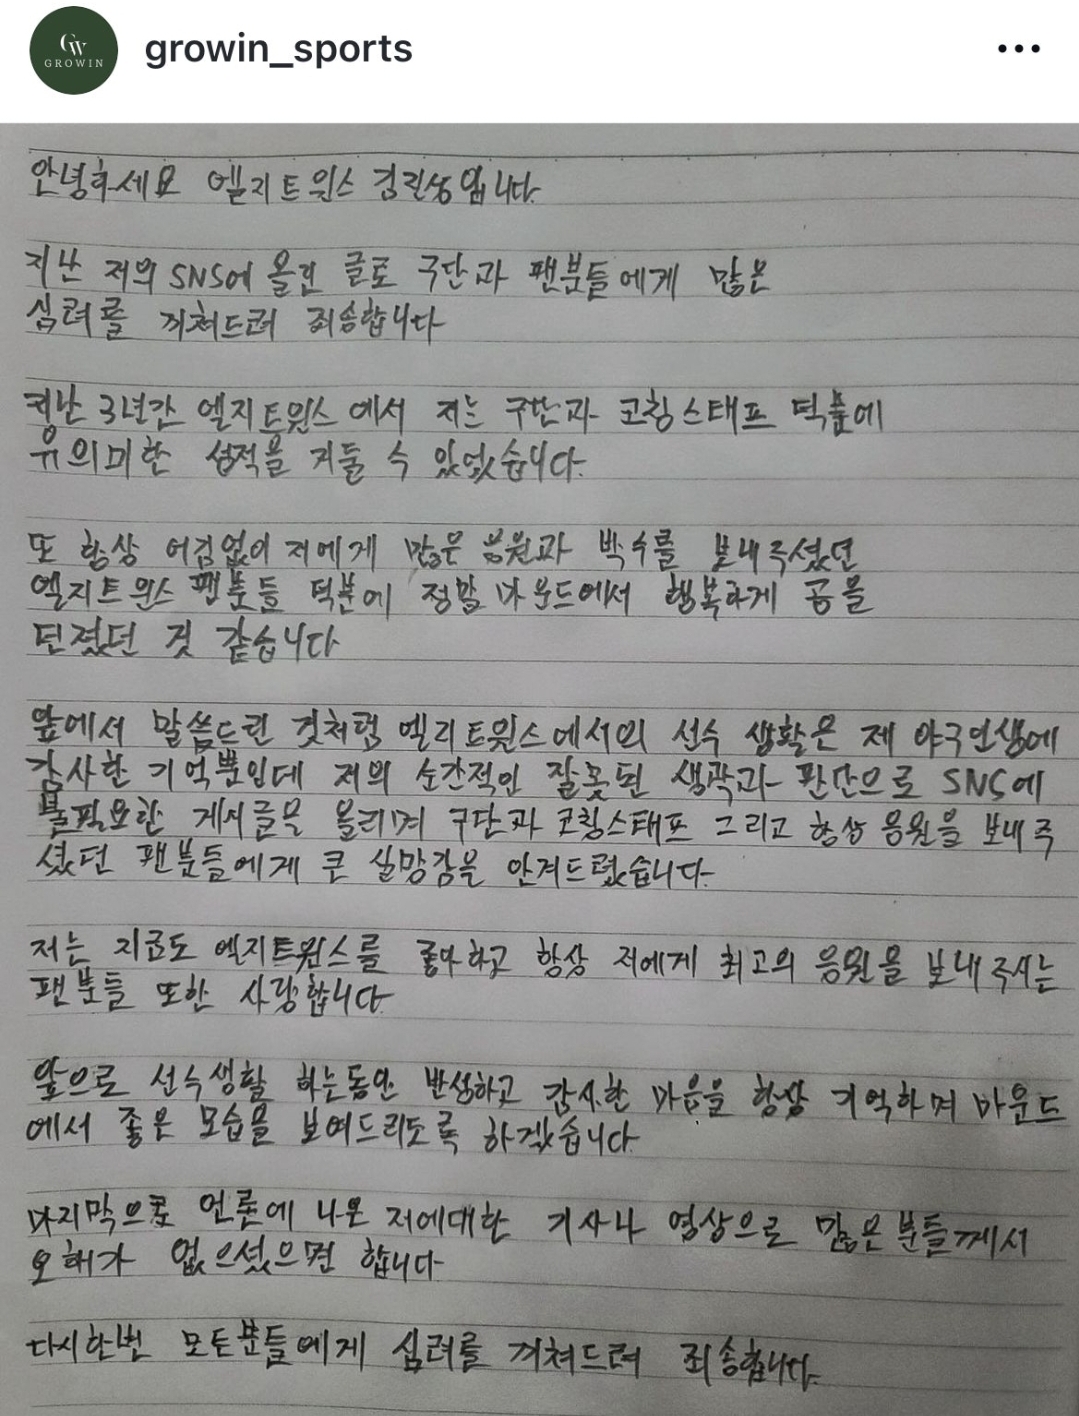 GW
GROWIN
growin_sports
안녕하세요 엘지트윈스 김진성입니다.
지난 저의 SNS에 올린 글로 구단과 팬분들에게 많은
심려를 끼쳐드려 죄송합니다
지난 3년간 엘지트윈스에서 저는 구단과 코칭스태프 덕분에
유의미한 성적을 거둘 수 있었습니다.
또 항상 어김없이 저에게 많은 응원과 박수를 보내주셨던
엘지트윈스 팬분들 덕분에 정말 마운드에서 행복하게 공을
던졌던 것 같습니다
앞에서 말씀드린 것처럼 엘지트윈스에서의 선수 생활은 제 야구인생에
감사한 기억뿐인데 저의 순간적인 잘못된 생각과 판단으로 SNS에
불필요한 게시글을 올리며 구단과 코칭스태프 그리고 항상 응원을 보내주
셨던 팬분들에게 큰 실망감을 안겨드렸습니다.
저는 지금도 엘지트윈스를 좋아하고 항상 저에게 최고의 응원을 보내주시는
팬분들 또한 사랑합니다
앞으로 선수생활 하는동안 반성하고 감사한 마음을 항상 기억하며 마운드
에서 좋은 모습을 보여드리도록 하겠습니다.
마지막으로 언론에 나온 저에대한 기사나 영상으로 많은분들께서
오해가 없으셨으면 합니다.
다시한번 모든분들에게 심려를 끼쳐드려 죄송합니다.